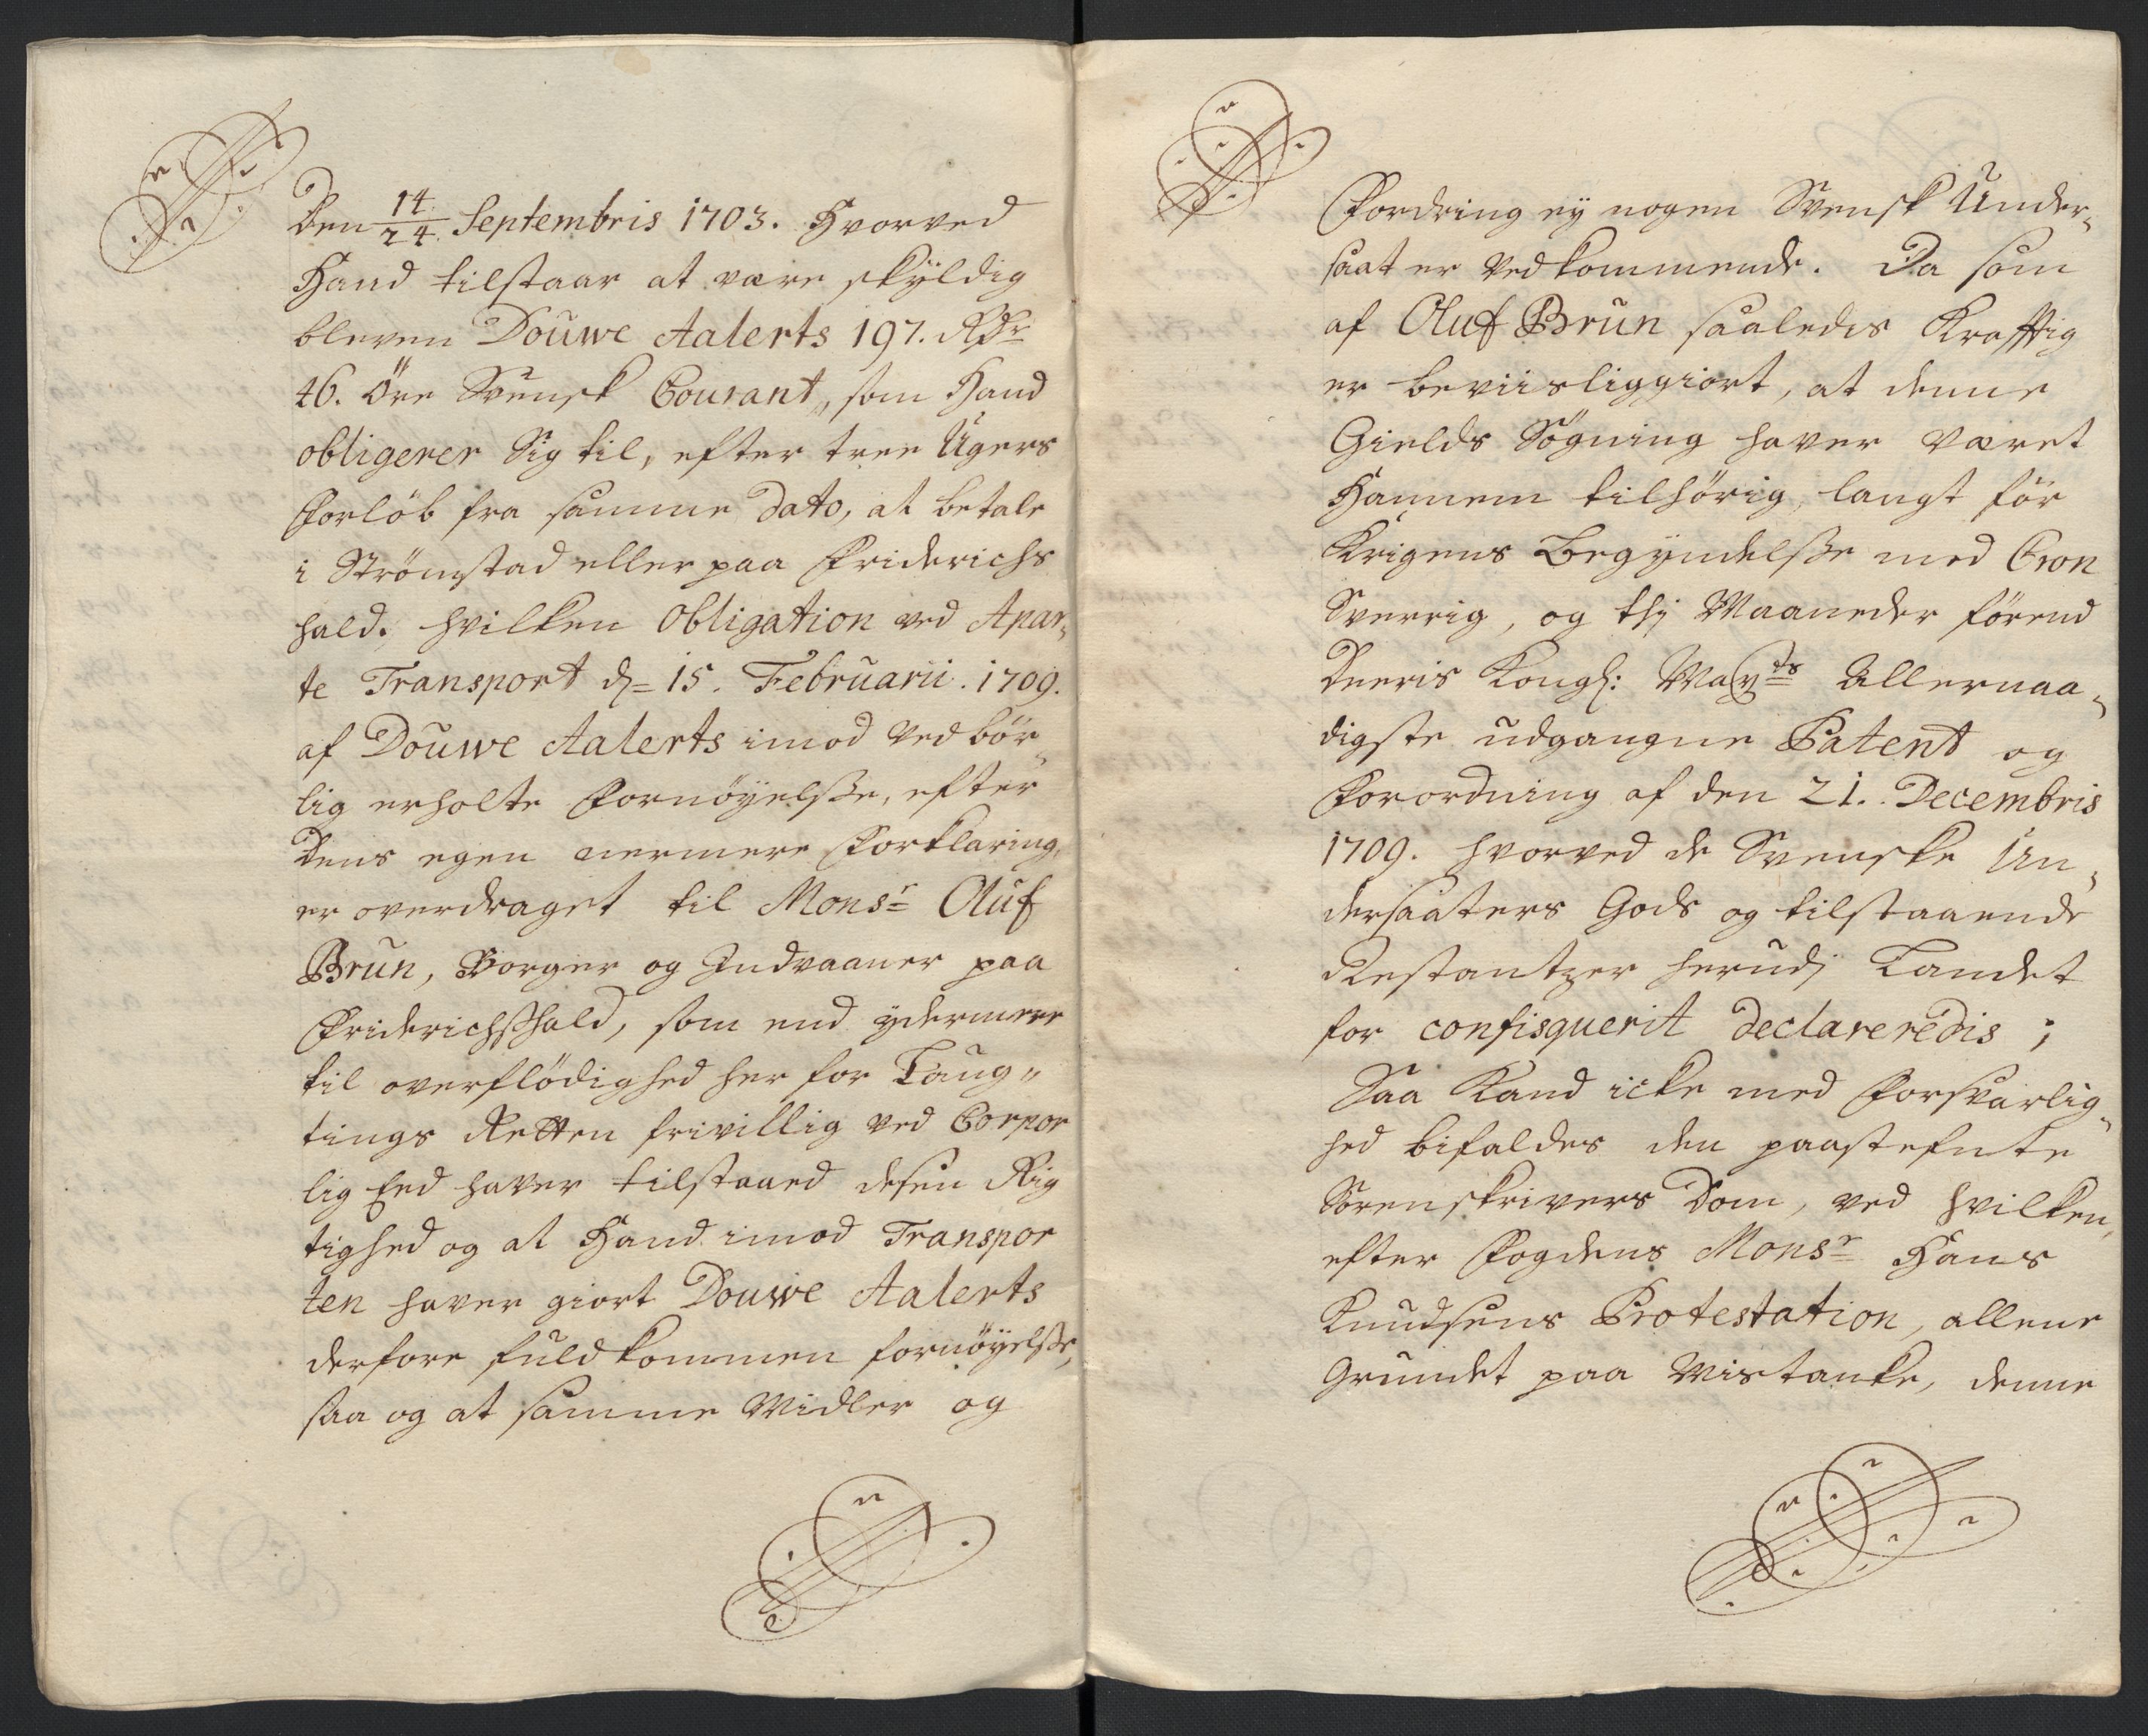 Den 14/24 Septembris 1703. Hvorved
Hand tilstaar at være skÿldig
bleven Douwe Aalerts 197. Rdr
46. öre Svensk Courant, som Hand
obligerer Sig til, efter tree Ugers
Forløb fra samme Dato, at betale
i Strömstad eller paa Friderichs
hald. Hvilken Obligation ved Apar„
te Transport d= 15. Februarii. 1709.
af Douwe Aalerts imod Ved bör„
lig erholte Fornöyelsse, efter
Dens egen nermere Forklaring,
er overdraget til Monsr Oluf
Brun, Borger og Indvaaner paa
Friderichshald, som end ydermere
til overflödighed her for Laug„
tings Retten frivillig ved Corpor
lig Eed haver tilstaaed desen Rig
tighed og at Hand imod Transpor
ten haver giort Douwe Aalerts
derfore fuldkommen fornöyelsse,
saa og at samme Midler og
Fordring ey nogen Svensk Under„
saat er Vedkommende. Da som
af Oluf Brun saaledes Krafftig
er beviisliggiort, at denne
Gields Sögning haver været
Hannem tilhörig, langt för
Krigens Begyndelsse med Cron
Sverrig, og thj Maaneder förend
Deeris Kongl: Mayts Allernaa„
digste udgangne Patent og
Forordning af den 21. Decembris
1709. hvorved de Svenske Un„
dersaaters Gods og tilstaaende
Restantzer herudj Landet
for confisquerit declareredis;
Saa Kand icke med Forsvarlig„
hed bifaldes den paastefnte
Sorenskrivers Dom, ved hvilken,
efter Fogdens Monsr Hans
Knudsens Protestation, allene
Grundet paa Mistanke, denne